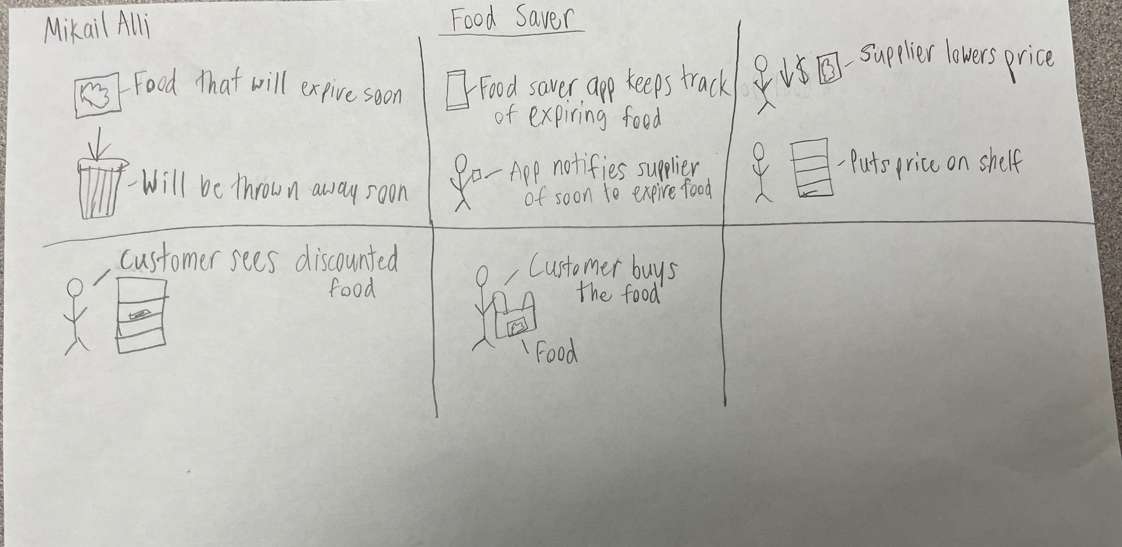 Mikail Alli
Food Saver
Food that will expire soon
Will be thrown away soon
Food saver app keeps track
of expiring food
App notifies supplier
of soon to expire food
↓$
Supplier lowers price
Puts price on shelf
Customer sees discounted
food
Customer buys
the food
Food